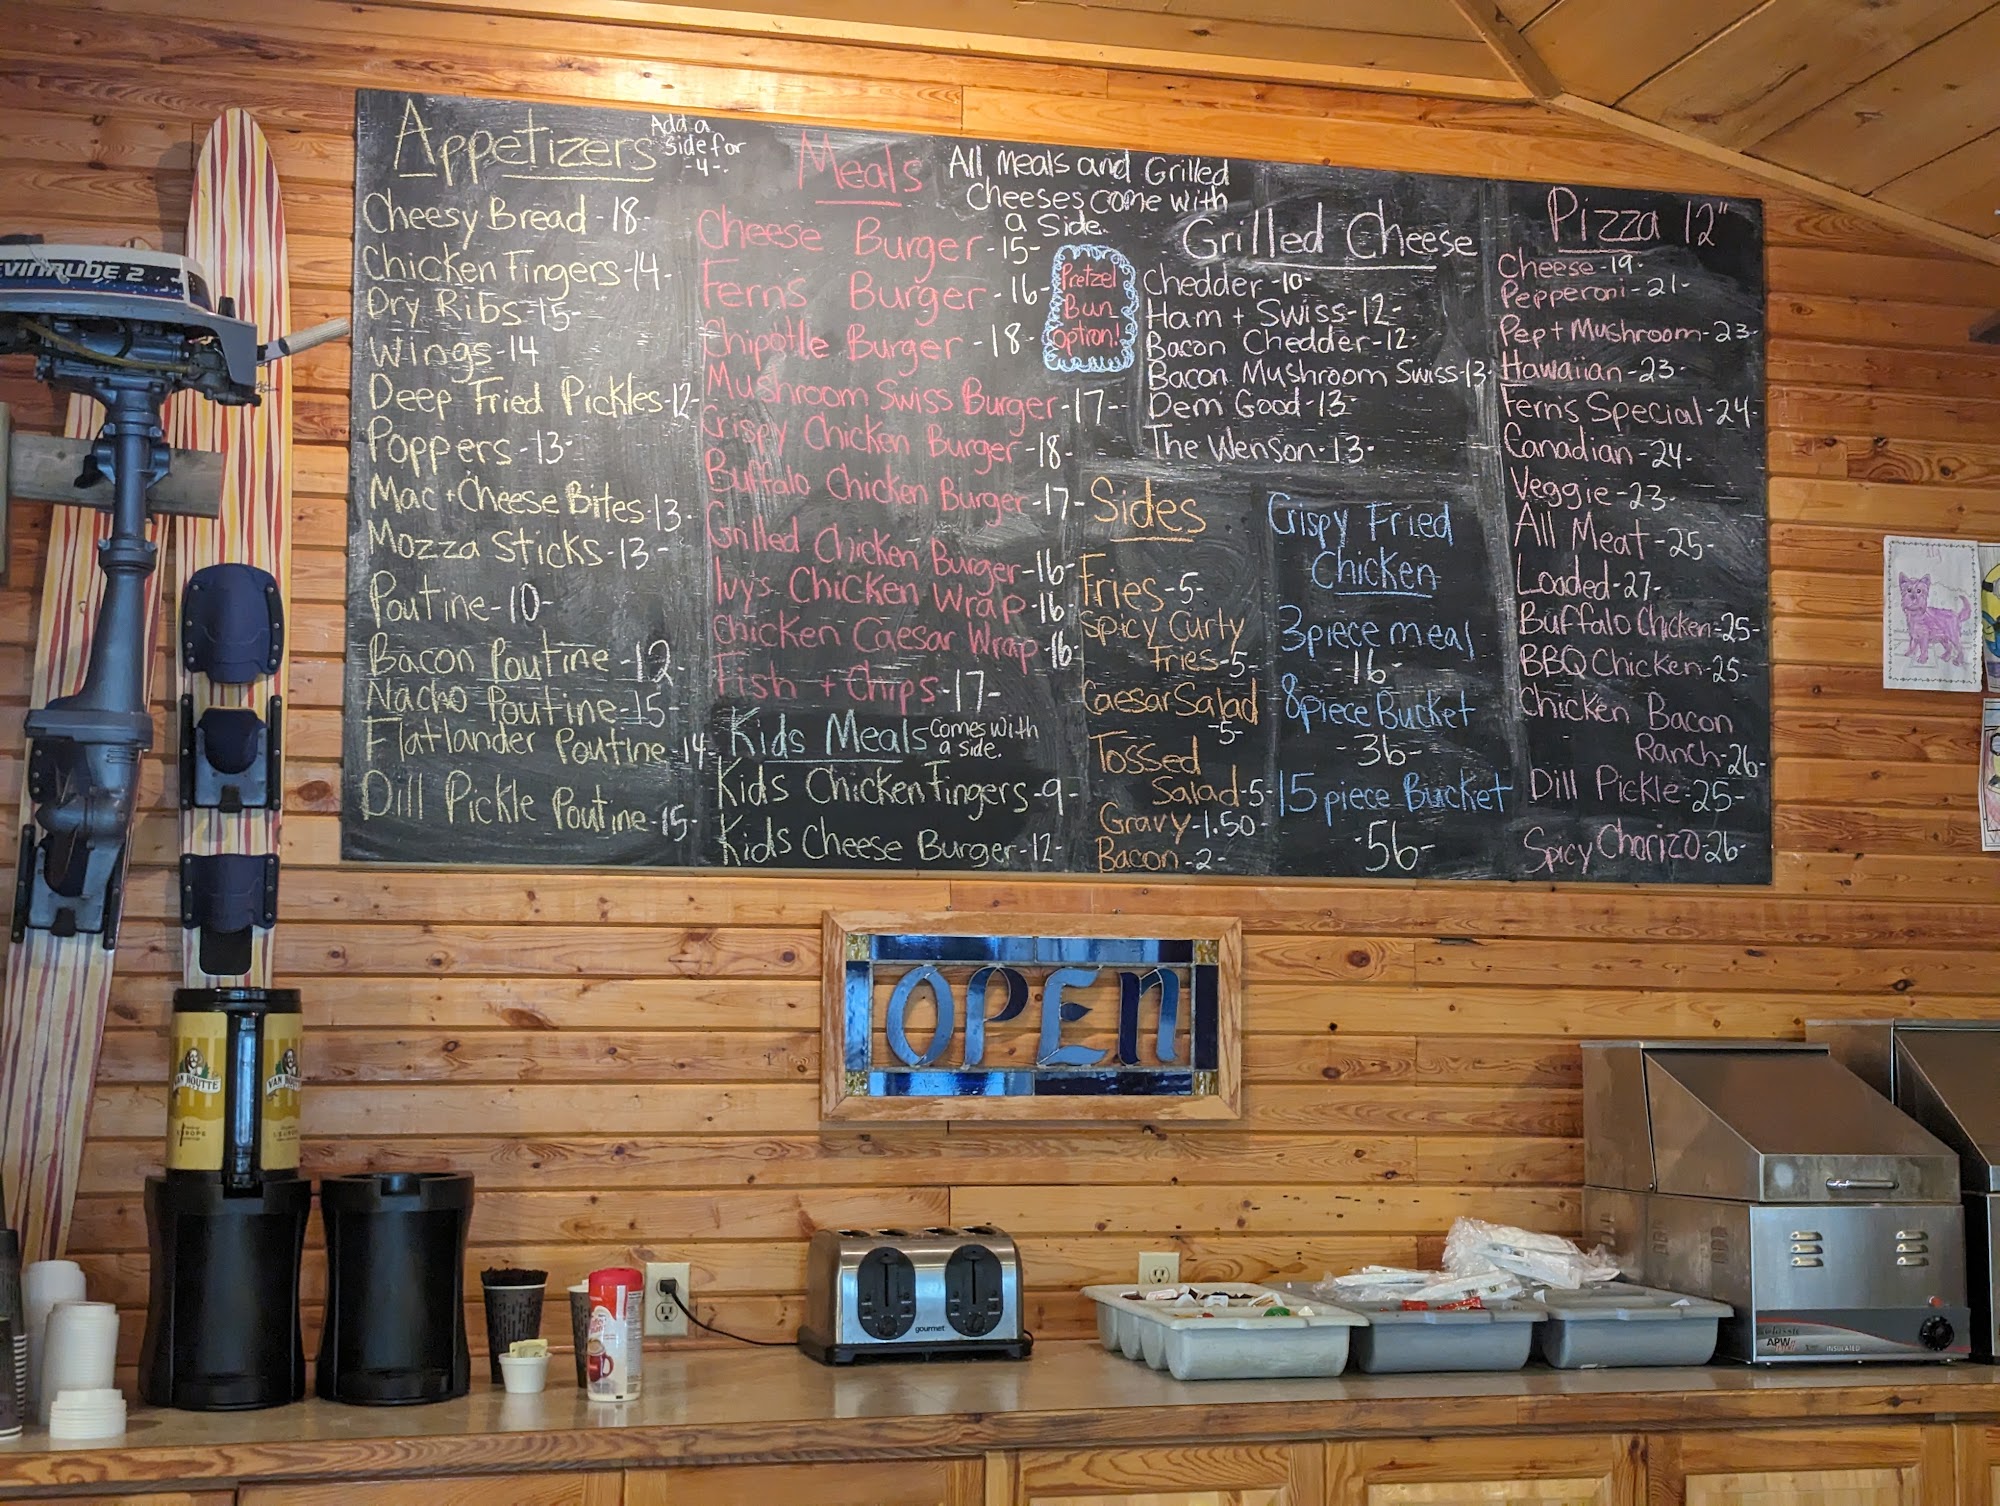 Appetizers
Add a
side for
-4-.
Cheesy Bread - 18-
Chicken Fingers - 14-
Dry Ribs - 15-
Wings - 14
Deep Fried Pickles - 12-
Poppers - 13-
Mac + Cheese Bites - 13-
Mozza Sticks - 13-
Poutine - 10-
Bacon Poutine - 12-
Nacho Poutine - 15-
Flatlander Poutine - 14-
Dill Pickle Poutine - 15-
Meals
All Meals and Grilled
Cheeses come with
a Side.
Cheese Burger - 15-
Ferns Burger - 16-
Chipotle Burger - 18-
Mushroom Swiss Burger - 17-
Crispy Chicken Burger - 18-
Buffalo Chicken Burger - 17-
Grilled Chicken Burger - 16-
Ivy's Chicken Wrap - 16-
Chicken Caesar Wrap - 16-
Fish + Chips - 17-
Pretzel
Bun
option!
Kids Meals
comes with
a side.
Kids Chicken Fingers - 9-
Kids Cheese Burger - 12-
Grilled Cheese
Chedder - 10-
Ham + Swiss - 12-
Bacon Chedder - 12-
Bacon Mushroom Swiss - 13-
Dem Good - 13-
The Wenson - 13-
Sides
Fries - 5-
Spicy Curly
Fries - 5-
Caesar Salad
-5-
Tossed
Salad - 5-
Gravy - 1.50-
Bacon - 2-
Crispy Fried
Chicken
3 piece meal
-16-
8 piece Bucket
-36-
15 piece Bucket
-56-
Pizza 12"
Cheese - 19-
Pepperoni - 21-
Pep + Mushroom - 23-
Hawaiian - 23-
Fern's Special - 24-
Canadian - 24-
Veggie - 23-
All Meat - 25-
Loaded - 27-
Buffalo Chicken - 25-
BBQ Chicken - 25-
Chicken Bacon
Ranch - 26-
Dill Pickle - 25-
Spicy Chorizo - 26-
EVINRUDE 2
OPEN
VAN HOUTTE
VAN HOUTTE
gourmet
APW
INSULATED